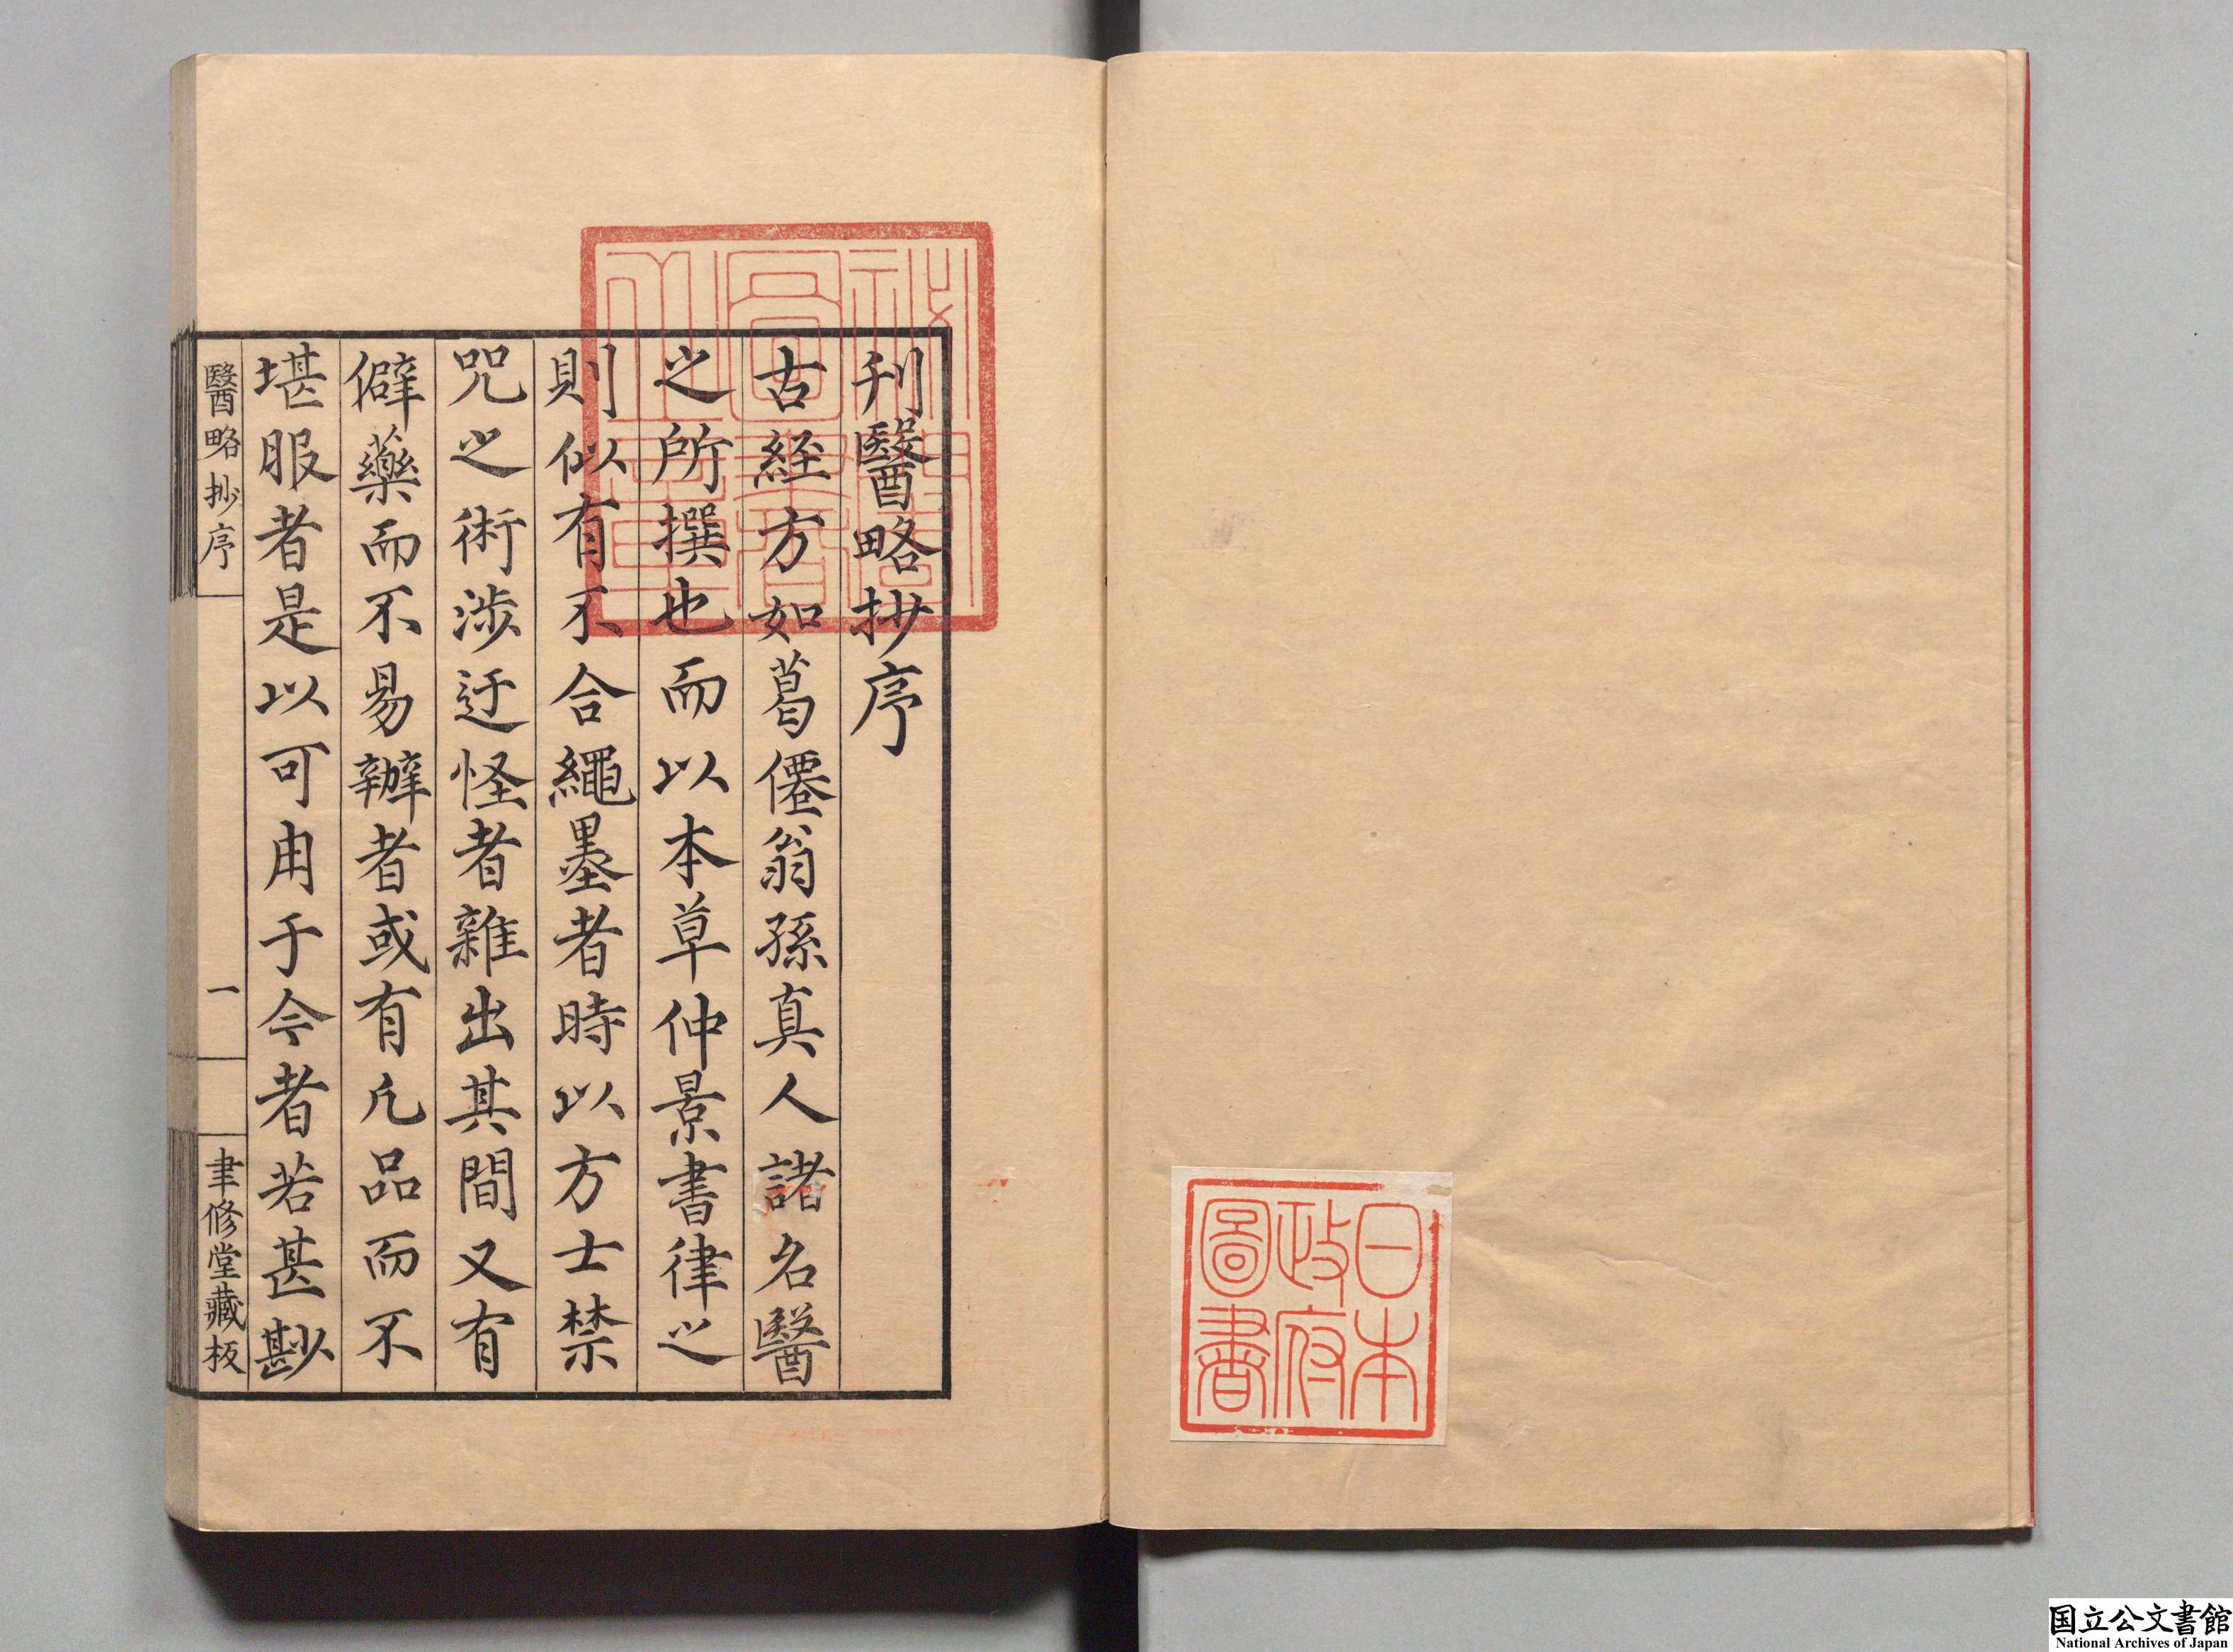 日本
政府
圖書
刋醫略抄序
古経方如葛僊翁孫真人諸名醫
之所撰也而以本草仲景書律之
則似有不合繩墨者時以方士禁
咒之術涉迂怪者雜出其間又有
僻藥而不易辦者或有凢品而不
堪服者是以可用于今者若甚尠
醫略抄序
一
聿修堂藏板
国立公文書館
National Archives of Japan